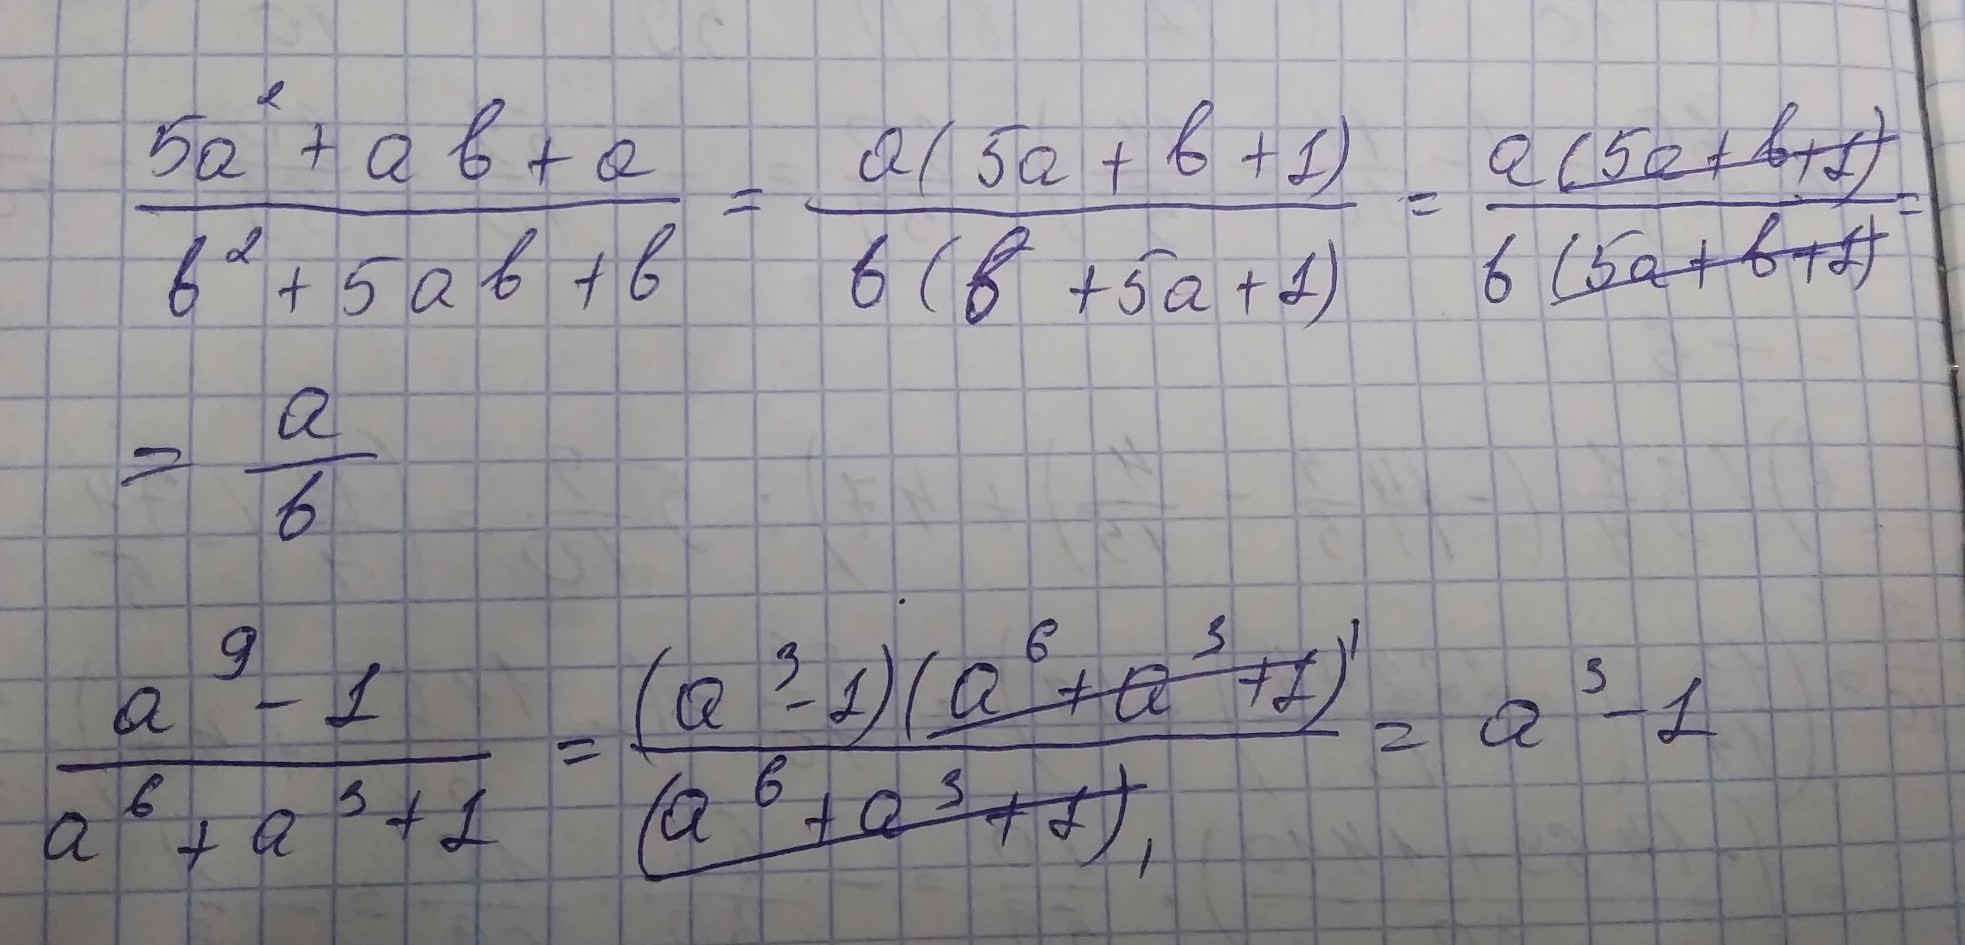 5a² + ab + a / b² + 5ab + b = a(5a + b + 1) / b(b + 5a + 1) = a(5a + b + 1) / b(5a + b + 1) =
= a / b
a⁹ - 1 / a⁶ + a³ + 1 = (a³ - 1)(a⁶ + a³ + 1)¹ / (a⁶ + a³ + 1)₁ = a³ - 1